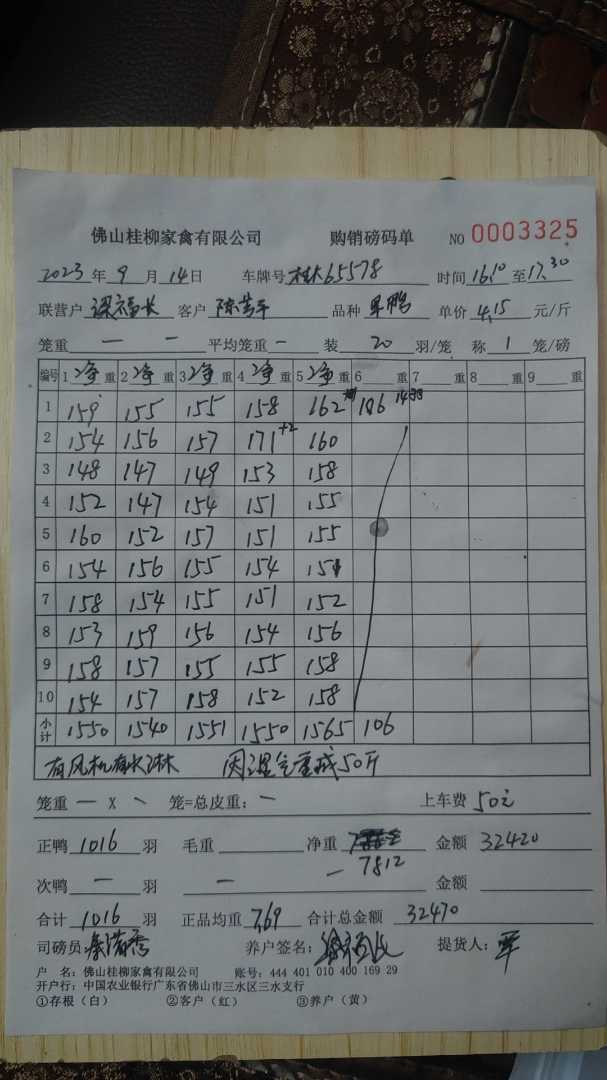 佛山桂柳家禽有限公司 购销磅码单 NO 0003325
2023年9月14日 车牌号 桂K65578 时间16:10至17:30
联营户 梁福长 客户 品种 单价4.15元/斤
笼重 — — 平均笼重 — 装20羽/笼 称1笼/磅
编号 1净重 2净重 3净重 4净重 5净重 6 重 7 重 8 重 9 重
1 159 155 155 158 162 106
2 154 156 157 171+2 160
3 148 147 149 153 158
4 152 147 154 151 155
5 160 152 157 151 155
6 154 156 155 154 151
7 158 154 155 151 152
8 153 159 156 154 156
9 158 157 155 155 158
10 154 157 158 152 158
小计 1550 1540 1551 1550 1565 106
有风机有水淋 因湿气重减50斤
笼重 — X — 笼=总皮重: — 上车费 50元
正鸭1016羽 毛重 净重 金额32420
7812
次鸭 — 羽 — — 金额
合计1016羽 正品均重7.69 合计总金额 32470
司磅员: 养户签名: 提货人:
户 名:佛山桂柳家禽有限公司 账号:444 401 010 400 169 29
开户行:中国农业银行广东省佛山市三水区三水支行
①存根(白) ②客户(红) ③养户(黄)